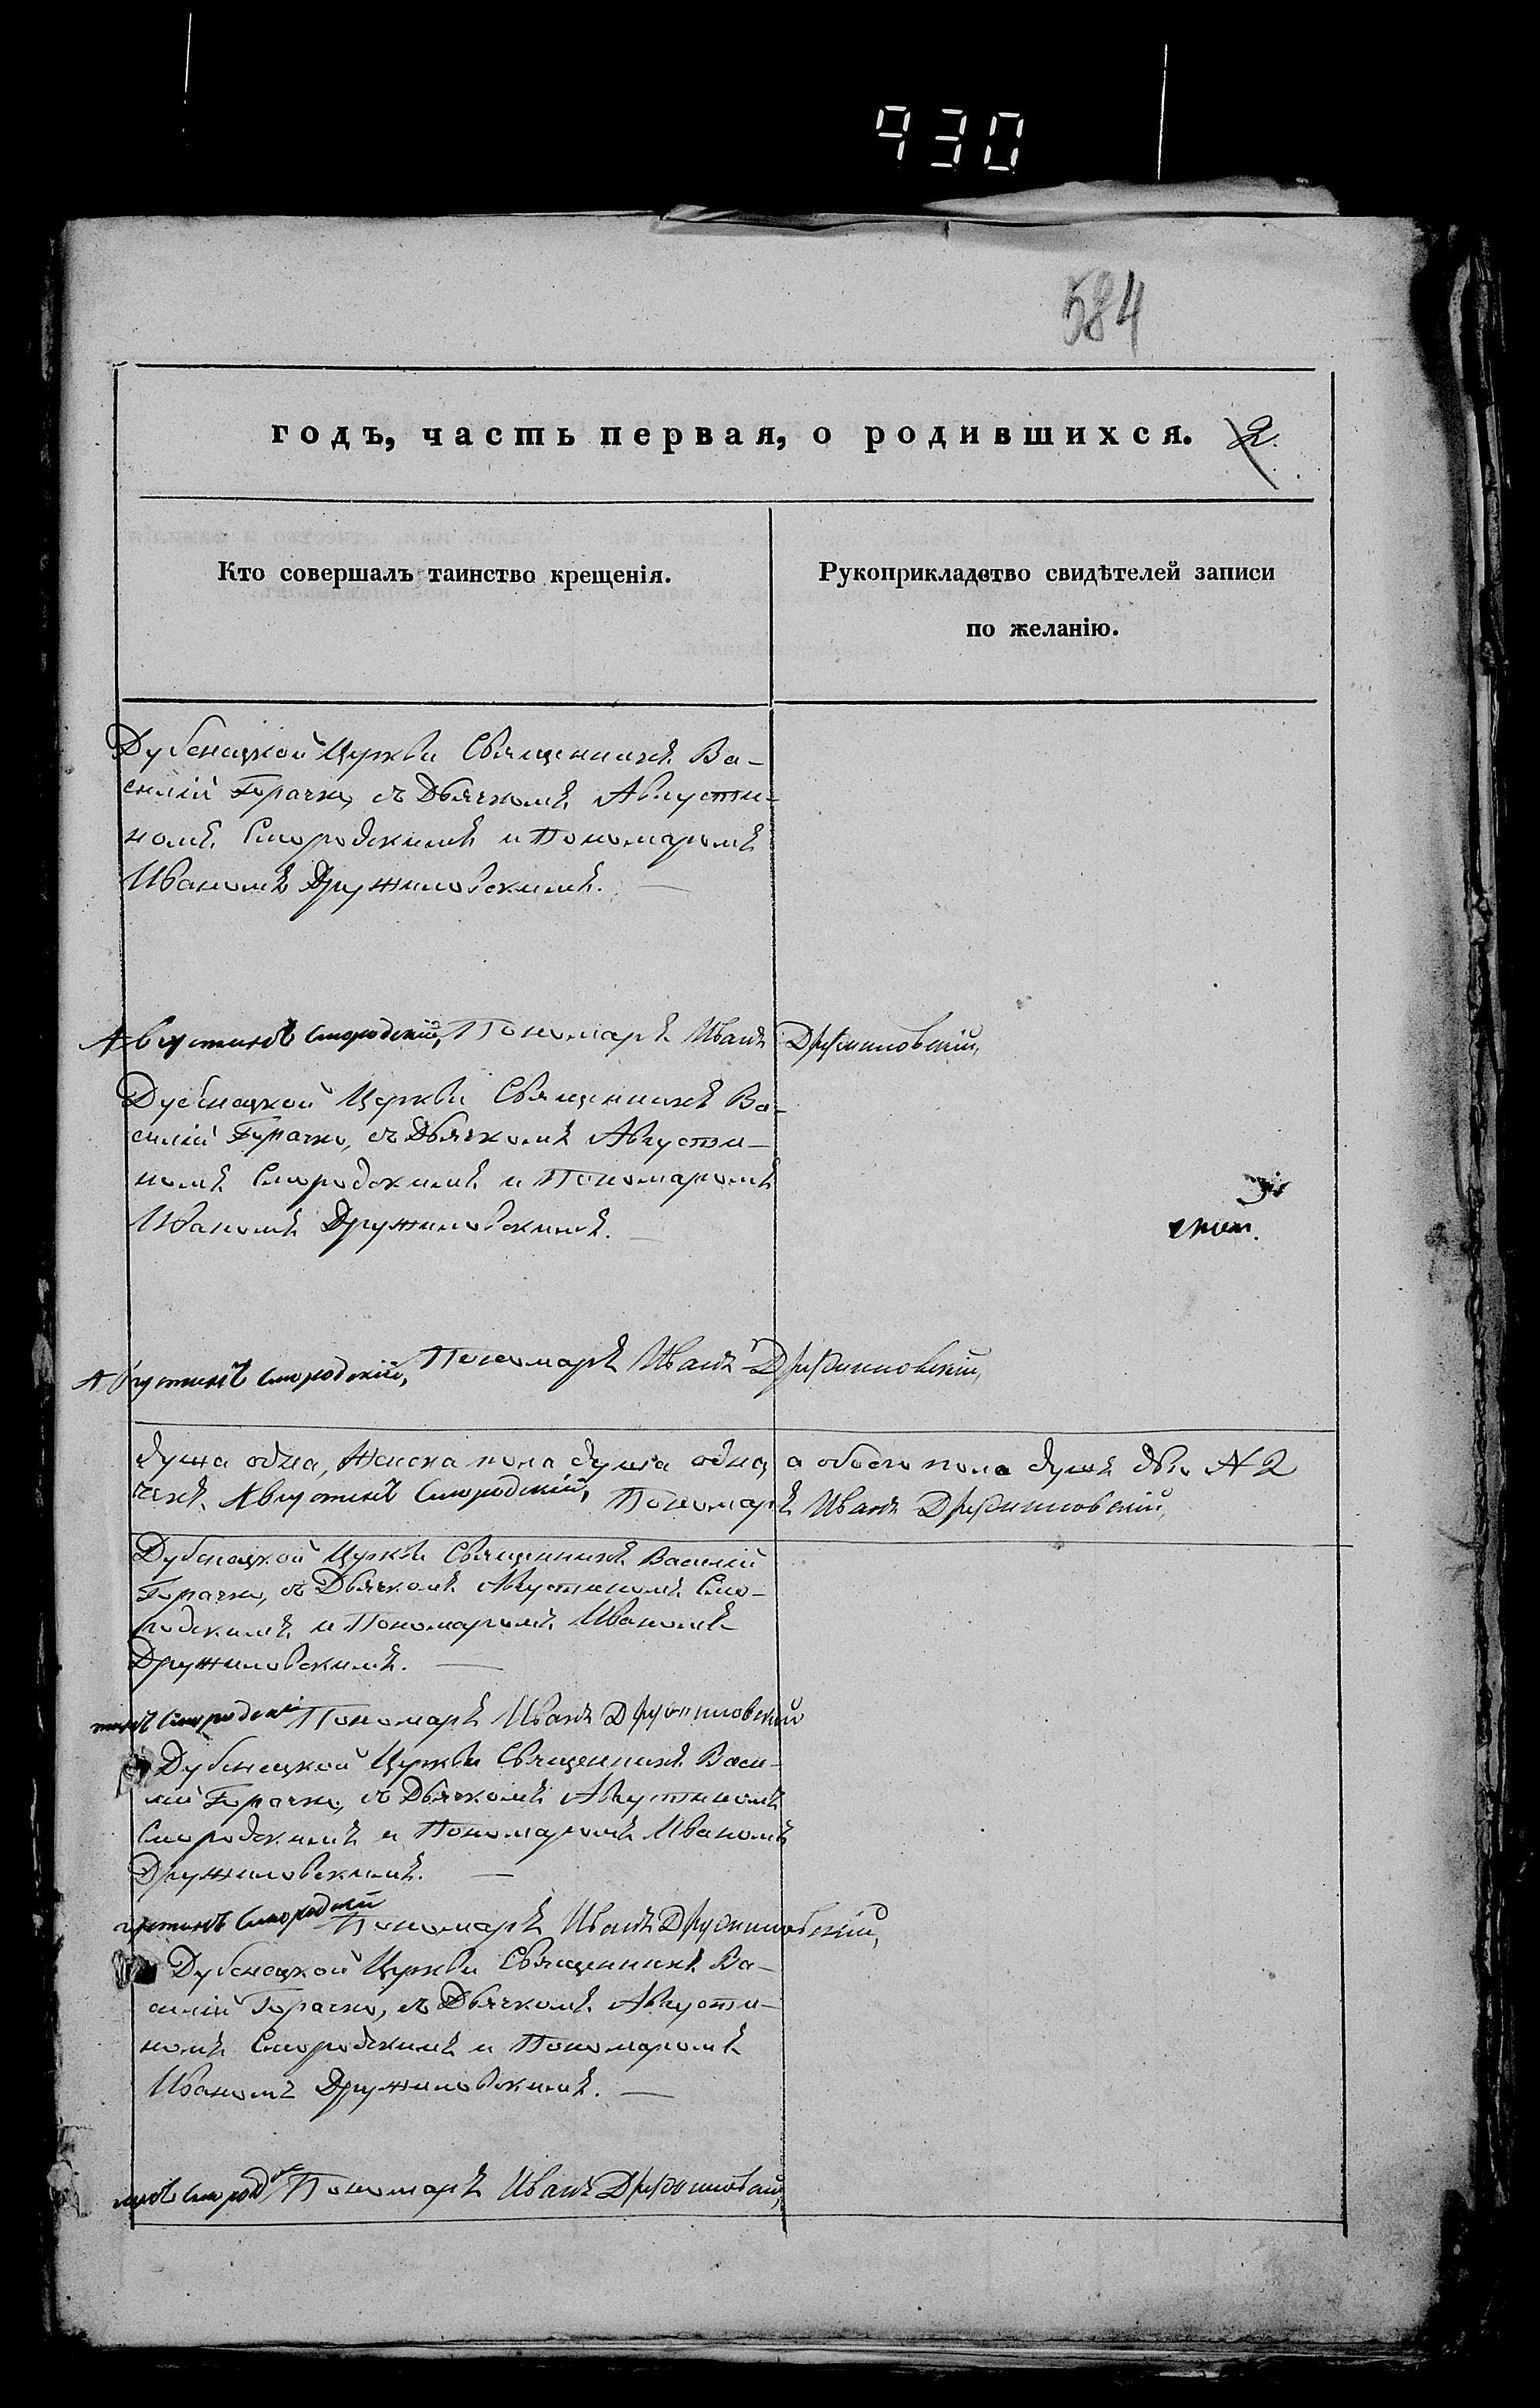 930
584
годъ, часть первая, о родившихся. 2.
Кто совершалъ таинство крещенія.
Рукоприкладство свидѣтелей записи
по желанію.
Дубенецкой Церкви Священникъ Ва-
силій Горачко, съ Дьячкомъ Августи-
номъ Смородскимъ и Пономаромъ
Иваномъ Дружиловскимъ. —
Августинъ Смородскій, Пономарь Иванъ Дружиловскій,
Дубенецкой Церкви Священникъ Ва-
силій Горачко, съ Дьячкомъ Августи-
номъ Смородскимъ и Пономаромъ
Иваномъ Дружиловскимъ. —
Августинъ Смородскій, Пономарь Иванъ Дружиловскій,
душа одна, Женска пола душа одна, а обоего пола душъ двѣ № 2
чекъ Августинъ Смородскій, Пономарь Иванъ Дружиловскій,
Дубенецкой Церкви Священникъ Василій
Горачко, съ Дьячкомъ Августиномъ Смо-
родскимъ и Пономаромъ Иваномъ
Дружиловскимъ. —
тинъ Смородскі Пономарь Иванъ Дружиловскій
Дубенецкой Церкви Священникъ Васи-
лій Горачко, съ Дьячкомъ Августиномъ
Смородскимъ и Пономаромъ Иваномъ
Дружиловскимъ. —
густинъ Смородскій Пономарь Иванъ Дружиловскій,
Дубенецкой Церкви Священникъ Ва-
силій Горачко, съ Дьячкомъ Августи-
номъ Смородскимъ и Пономаромъ
Иваномъ Дружиловскимъ. —
Пономарь Иванъ Дружиловскій,